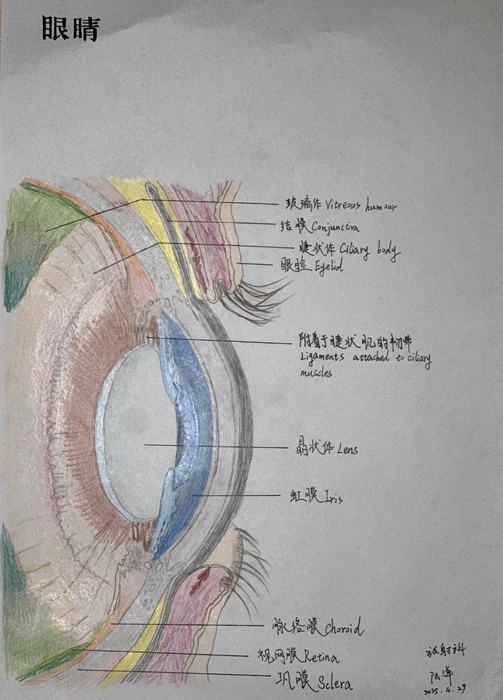 眼睛
玻璃体 Vitreous humour
结膜 Conjunctiva
睫状体 Ciliary body
眼睑 Eyelid
附着于睫状肌的韧带
Ligaments attached to ciliary
muscles
晶状体 Lens
虹膜 Iris
脉络膜 Choroid
视网膜 Retina
巩膜 Sclera
放射科
2025.4.29